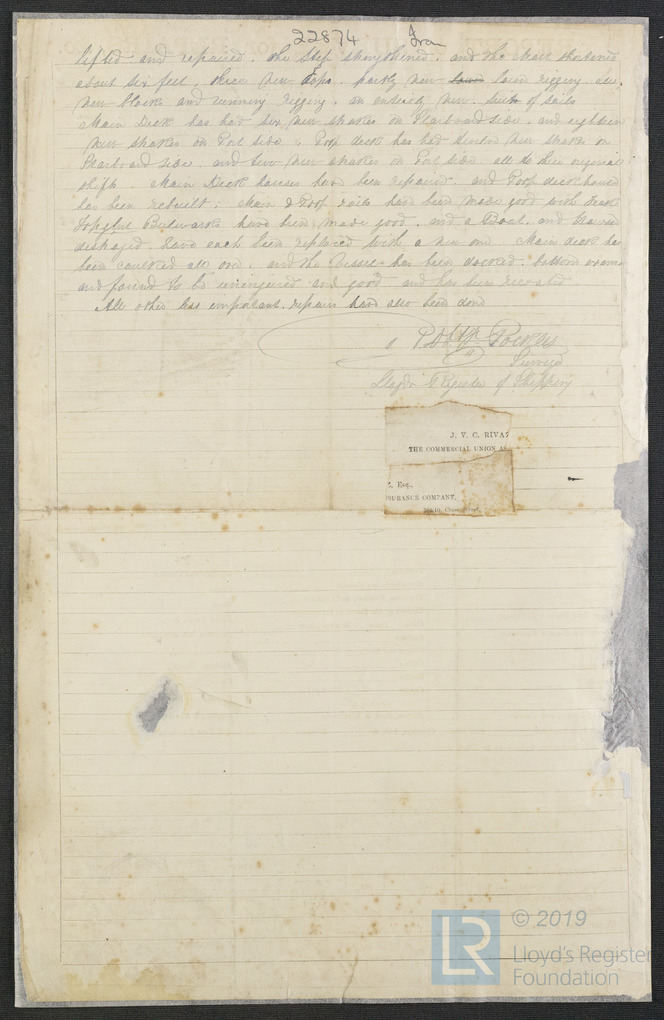 22874 Iran
lifted and repaired. the Step strengthened. and the mast shortened
about six feet, three new caps. partly new lower rigging. all.
new blocks and running rigging. an entirely new suit of sails
Main Deck has had six new strakes on Starboard side. and eighteen
new strakes on Port side. Poop deck has had new strakes on
Starboard side. and two new strakes on Port side. all to their original
shift. Main Deck houses have been repaired. and Poop deck house
has been rebuilt; Main & Poop rails have been made good with teak
Topgallt Bulwarks have been made good. and a Boat. and Hawser
damaged. have each been replaced with a new one. Main deck has
been caulked all over. and the Vessel has been docked. bottom
and found to be uninjured and good and has been recoated
All other less important. repairs have also been done
Surveyor
Lloyd's Register of Shipping
J. V. C. RIVA
THE COMMERCIAL UNION AS
, Esq.,
SURANCE COMPANY,
© 2019
LR Lloyd's Register
Foundation